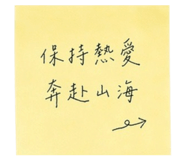 保持熱愛
奔赴山海